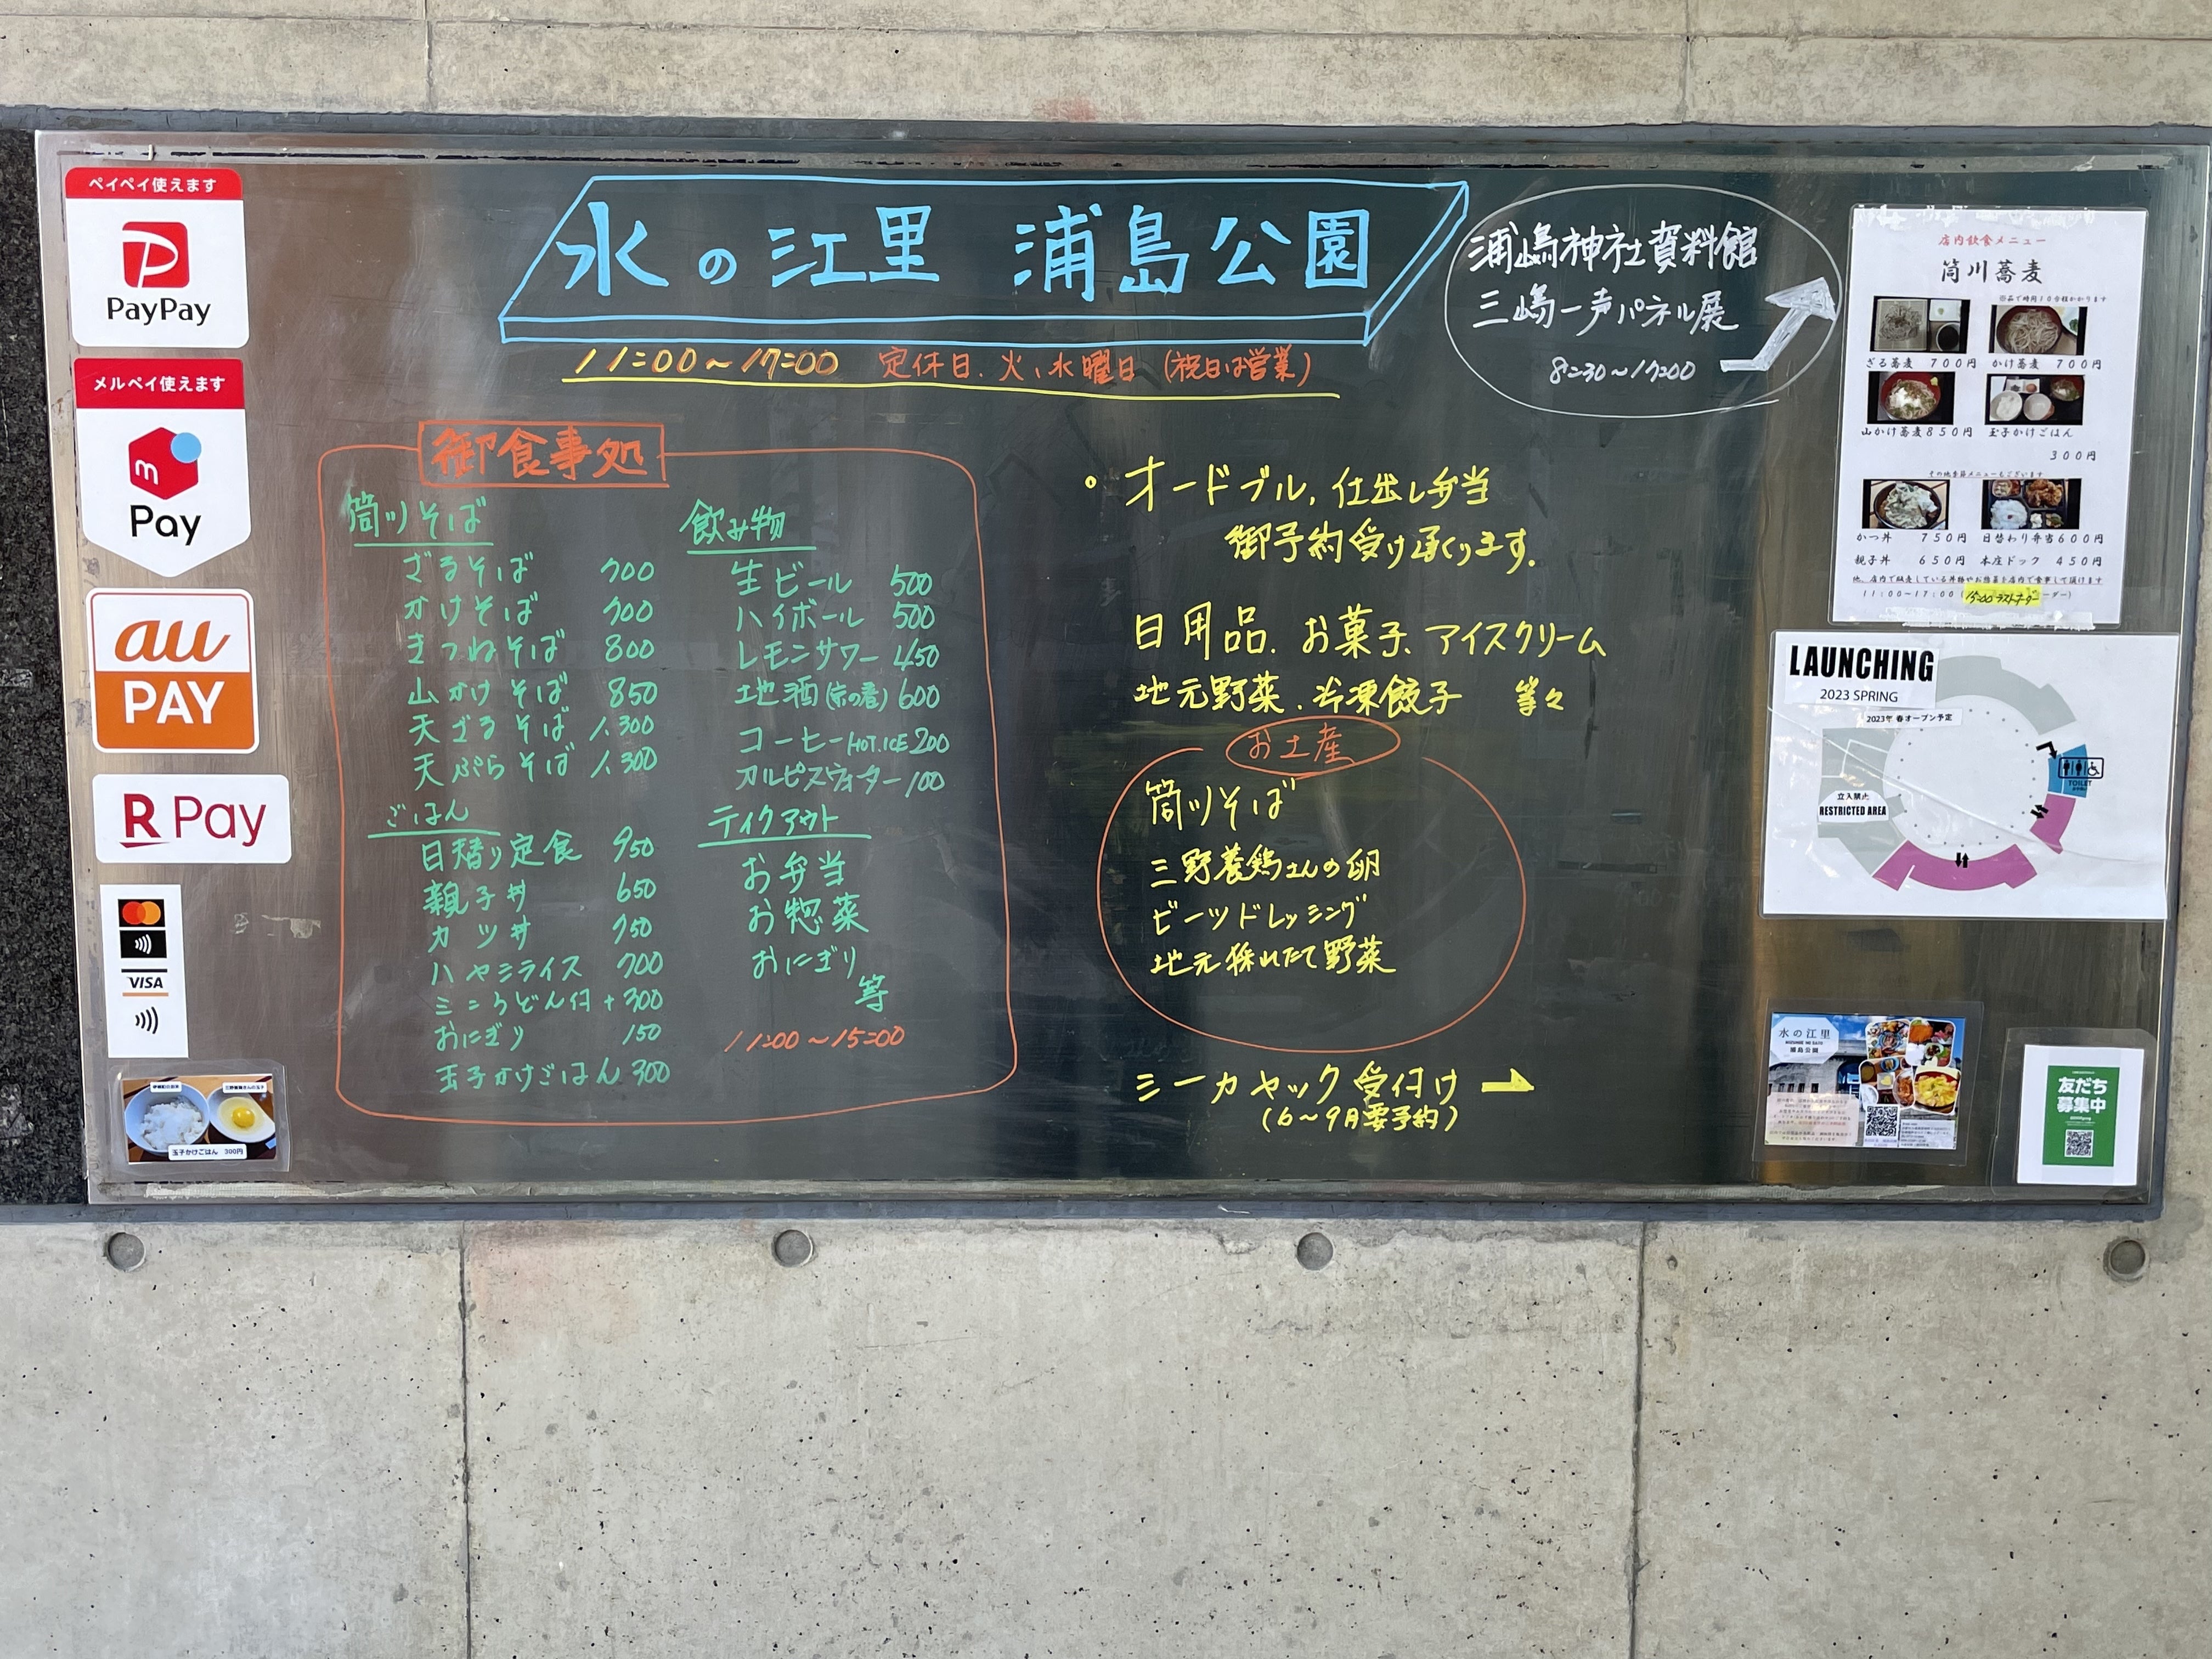 ペイペイ使えます
PayPay
メルペイ使えます
m
Pay
au
PAY
R Pay
VISA
玉子かけごはん 300円
水の江里 浦島公園
11:00～17:00 定休日、火、水曜日(祝日は営業)
浦嶋神社資料館
三嶋一声パネル展
8:30～17:00
御食事処
筒川そば
ざるそば 700
かけそば 700
きつねそば 800
山かけそば 850
天ざるそば 1,300
天ぷらそば 1,300
ごはん
日替り定食 950
親子丼 650
カツ丼 750
ハヤシライス 700
ミニうどん付 +300
おにぎり 150
玉子かけごはん 300
飲み物
生ビール 500
ハイボール 500
レモンサワー 450
地酒(京の春) 600
コーヒーHOT.ICE 200
カルピスウォーター 100
テイクアウト
お弁当
お惣菜
おにぎり
等
11:00～15:00
。オードブル、仕出し弁当
御予約受け承ります。
日用品、お菓子、アイスクリーム
地元野菜、冷凍餃子 等々
お土産
筒川そば
三野養鶏さんの卵
ビーツドレッシング
地元採れたて野菜
シーカヤック受付け
(6～9月要予約)
店内飲食メニュー
筒川蕎麦
ざる蕎麦 700円 かけ蕎麦 700円
山かけ蕎麦850円 玉子かけごはん
300円
その他季節メニューもございます
かつ丼 750円 日替わり弁当600円
親子丼 650円 本庄ドック 450円
11:00～17:00 (15:00ラストオーダー)
LAUNCHING
2023 SPRING
2023年 春オープン予定
立入禁止
RESTRICTED AREA
TOILET
水の江里
浦島公園
友だち
募集中